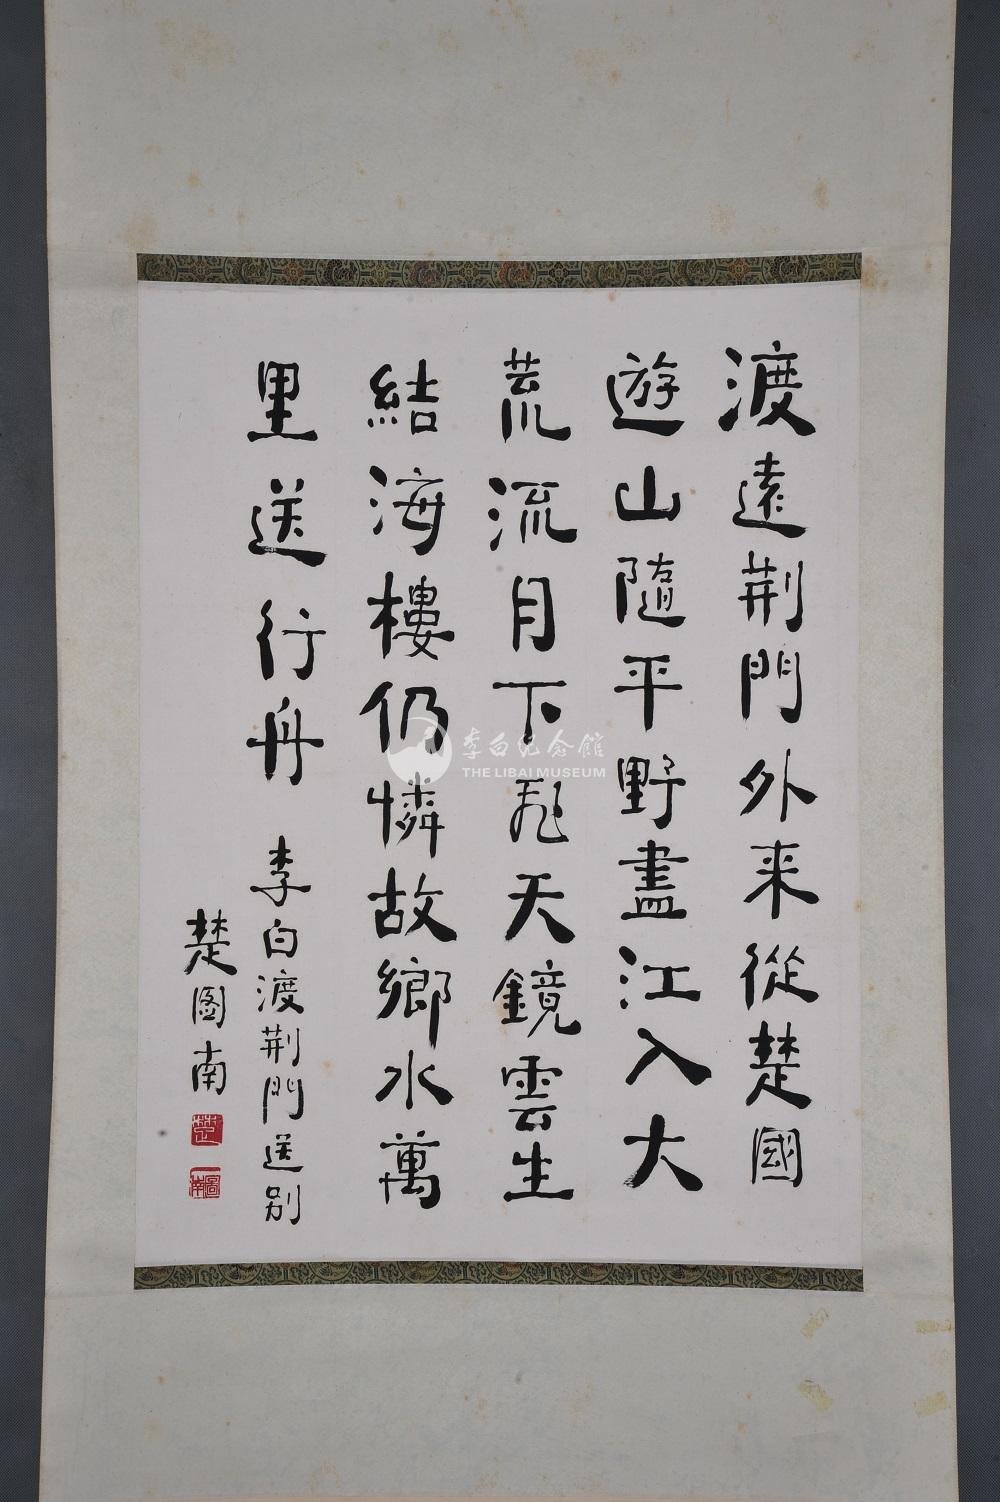 渡遠荆門外来從楚國
遊山隨平野盡江入大
荒流月下飛天鏡雲生
結海樓仍憐故鄉水萬
里送行舟 李白渡荆門送别
楚图南
楚
圖南
李白纪念館
THE LIBAI MUSEUM